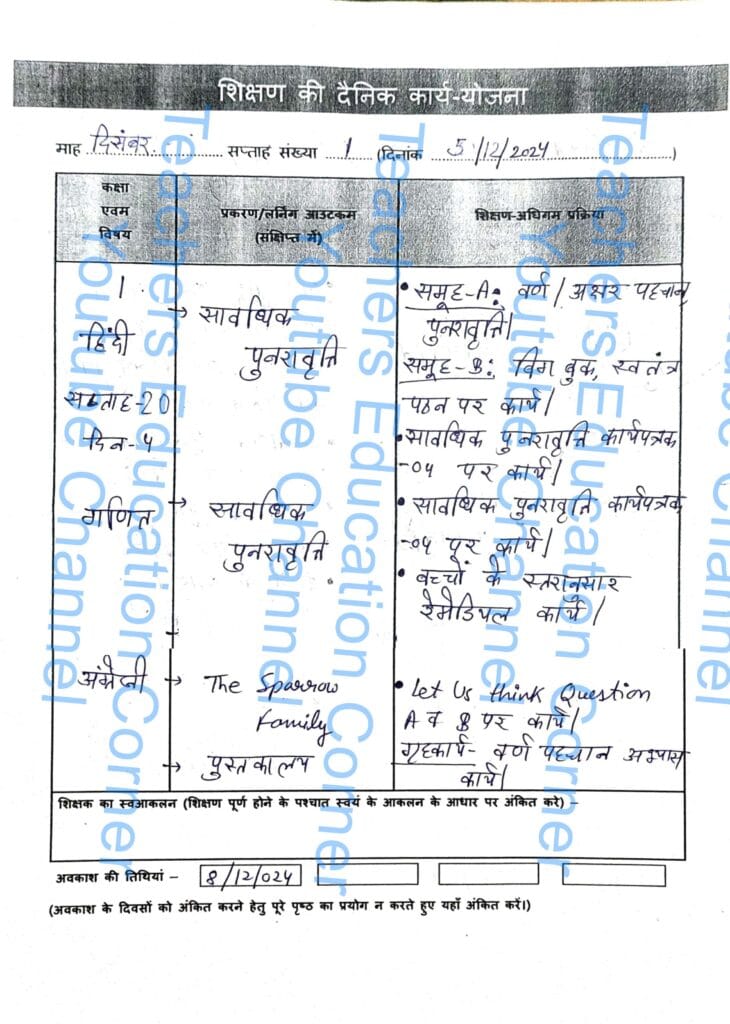 शिक्षण की दैनिक कार्य-योजना
माह दिसंबर सप्ताह संख्या 1 (दिनांक 5/12/2024)
कक्षा
एवम
विषय
प्रकरण/लर्निंग आउटकम
(संक्षिप्त में)
शिक्षण-अधिगम प्रक्रिया
1
हिंदी
सप्ताह-20
दिन-4
→ सावधिक
पुनरावृत्ति
• समूह-A: वर्ण/अक्षर पहचान
पुनरावृत्ति।
समूह-B: बिग बुक, स्वतंत्र
पठन पर कार्य।
• सावधिक पुनरावृत्ति कार्यपत्रक
-04 पर कार्य।
गणित
→ सावधिक
पुनरावृत्ति
• सावधिक पुनरावृत्ति कार्यपत्रक
-04 पर कार्य।
• बच्चों के स्तरानुसार
रेमेडियल कार्य।
अंग्रेजी
→ The Sparrow
Family
→ पुस्तकालय
• Let Us think Question
A व B पर कार्य।
गृहकार्य- वर्ण पहचान अभ्यास
कार्य।
शिक्षक का स्वआकलन (शिक्षण पूर्ण होने के पश्चात स्वयं के आकलन के आधार पर अंकित करे) –
अवकाश की तिथियां – 8/12/024
(अवकाश के दिवसों को अंकित करने हेतु पूरे पृष्ठ का प्रयोग न करते हुए यहाँ अंकित करें।)
Teachers Education Corner
Youtube Channel
Teachers Education Corner
Youtube Channel
Teachers Education Corner
Youtube Channel